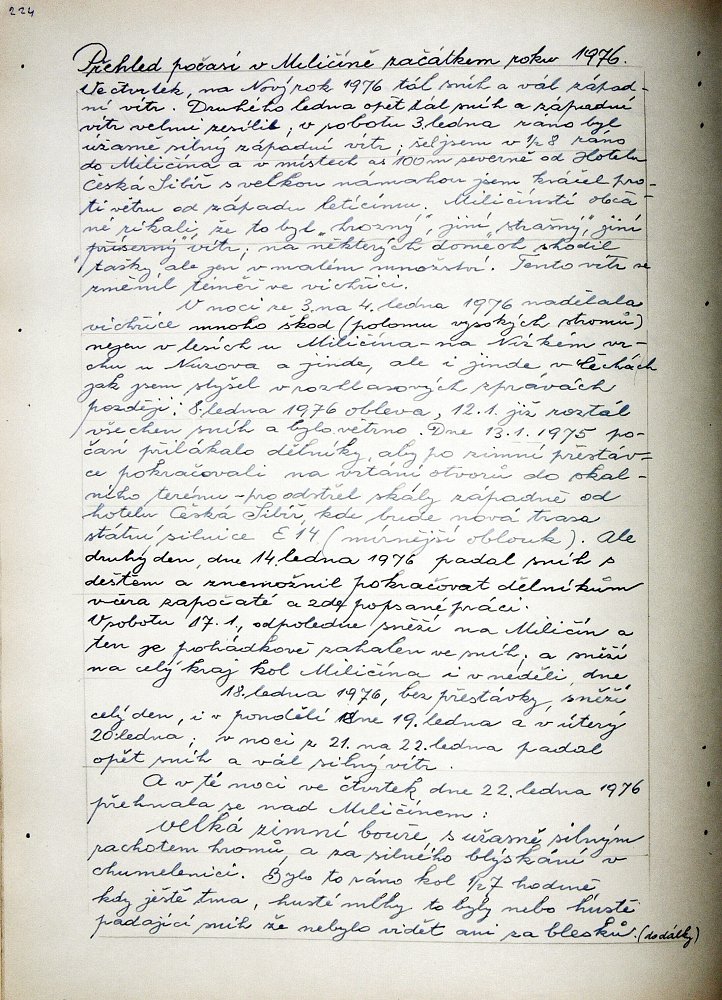 224
Přehled počasí v Miličíně začátkem roku 1976.
Ve čtvrtek, na Nový rok 1976 tál sníh a vál západ-
ní vítr. Druhého ledna opět tál sníh a západní
vítr velmi zesílil; v sobotu 3. ledna ráno byl
úžasně silný západní vítr; šel jsem v 1/2 8 ráno
do Miličína a v místech as 100 m severně od Hotelu
Česká Sibiř s velkou námahou jsem kráčel pro-
ti větru od západu letícímu. Miličínští obča-
né říkali, že to byl „hrozný", jiní „strašný", jiní
„příšerný" vítr; na některých domech shodil
tašky, ale jen v malém množství. Tento vítr se
změnil téměř ve vichřici.
V noci ze 3. na 4. ledna 1976 nadělala
vichřice mnoho škod (polomu vysokých stromů)
nejen v lesích u Miličína - na Nízkém vr-
chu u Nuzova a jinde, ale i jinde v Čechách
jak jsem slyšel v rozhlasových zprávách
později; 8. ledna 1976 obleva, 12.1. již roztál
všechen sníh a bylo větrno. Dne 13.1. 1975 po-
časí přilákalo dělníky, aby po zimní přestáv-
ce pokračovali na vrtání otvorů do skal-
ního terénu - pro odstřel skály západně od
hotelu Česká Sibiř, kde bude nová trasa
státní silnice E 14 (mírnější oblouk). Ale
druhý den, dne 14. ledna 1976 padal sníh s
deštěm a znemožnil pokračovat dělníkům
včera započaté a zde popsané práci.
V sobotu 17.1., odpoledne sněží na Miličín a
ten je pohádkově zahalen ve sníh; a sněží
na celý kraj kol Miličína i v neděli, dne
18. ledna 1976, bez přestávky, sněží
celý den, i v pondělí dne 19. ledna a v úterý
20. ledna; v noci z 21. na 22. ledna padal
opět sníh a vál silný vítr.
A v té noci ve čtvrtek dne 22. ledna 1976
přehnala se nad Miličínem:
velká zimní bouře, s úžasně silným
rachotem hromů, a za silného blýskání v
chumelenici. Bylo to ráno kol 1/2 7 hodině,
kdy ještě tma, husté mlhy to byly nebo hustě
padající sníh že nebylo vidět ani za blesků. (do dálky)